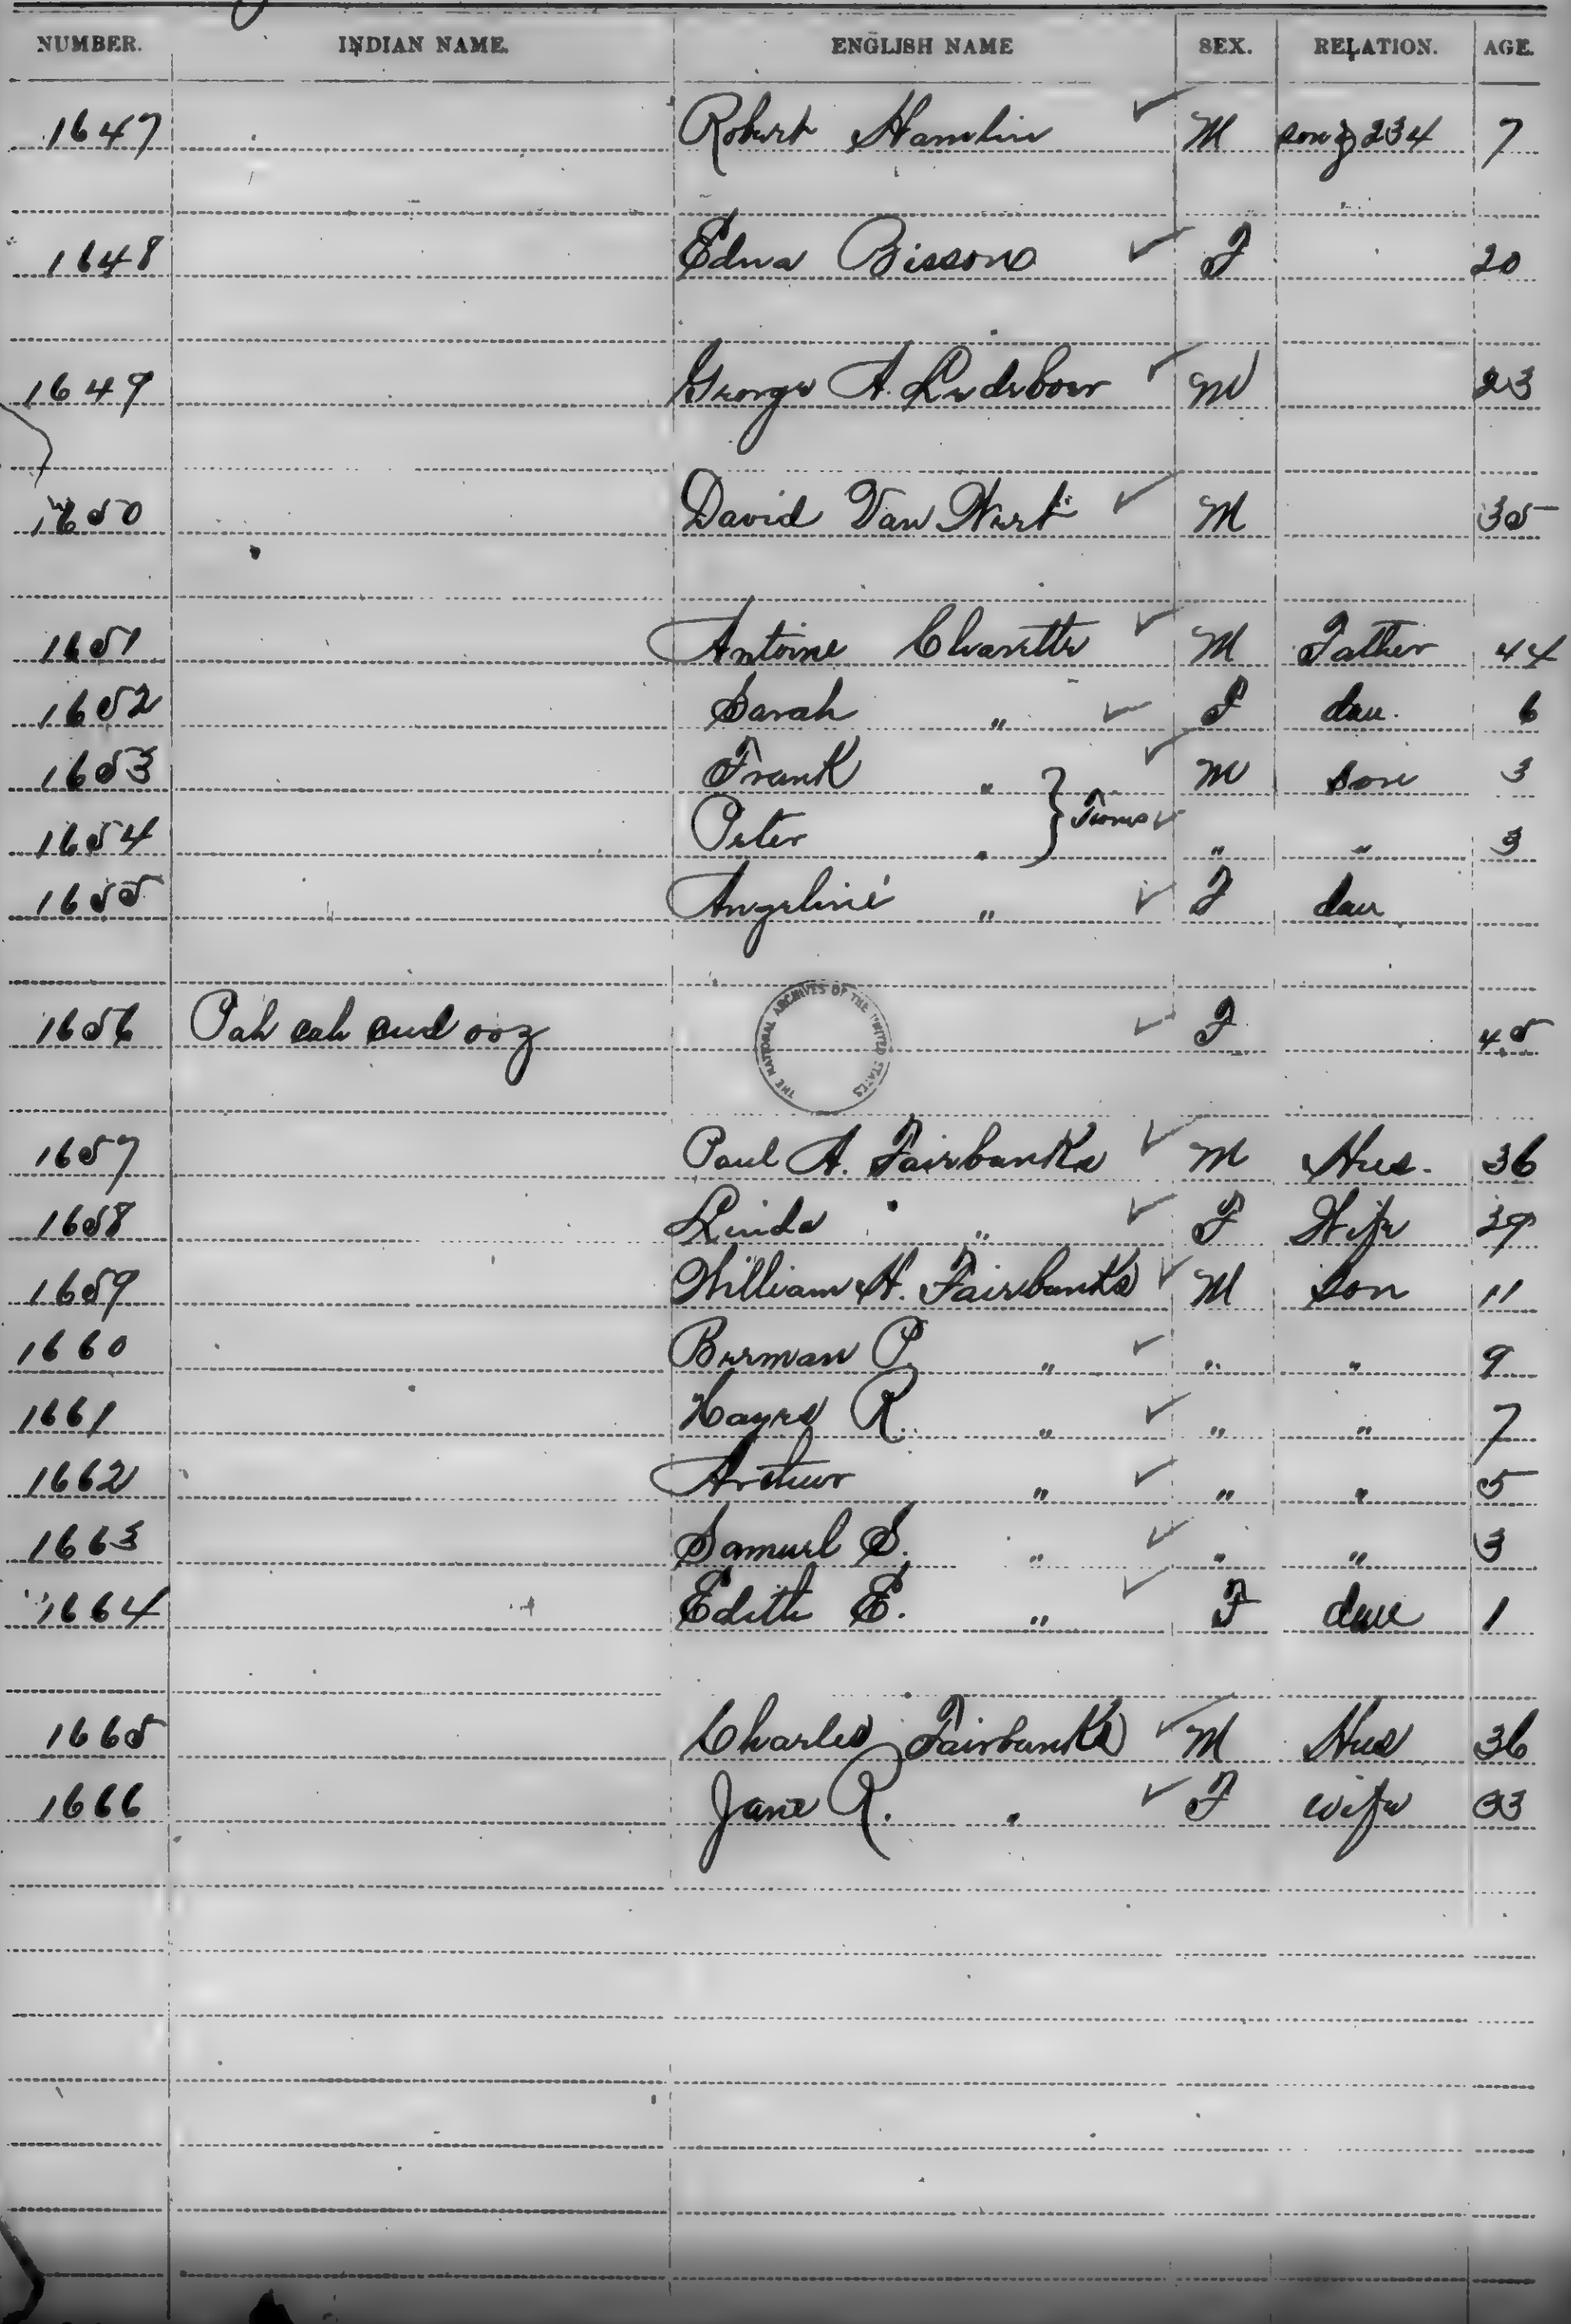 NUMBER. INDIAN NAME. ENGLISH NAME SEX. RELATION. AGE.
1647 Robert Hamlin ✓ M son of 234 7
1648 Edna Bisson ✓ F 20
1649 George A. Ledeboer ✓ M 23
1650 David Van Wert ✓ M 35
1651 Antoine Charette ✓ M Father 44
1652 Sarah " ✓ F dau. 6
1653 Frank " ✓ M son 3
1654 Peter " } Twins ✓ " " 3
1655 Angeline " ✓ F dau
1656 Pah cah aud ooz ✓ F 45
THE NATIONAL ARCHIVES OF THE UNITED STATES
1657 Paul H. Fairbanks ✓ M Hus. 36
1658 Linda " ✓ F Wife 39
1659 William H. Fairbanks ✓ M Son 11
1660 Berman P. " ✓ " " 9
1661 Hayes R. " ✓ " " 7
1662 Arthur " ✓ " " 5
1663 Samuel S. " ✓ " " 3
1664 Edith E. " ✓ F dau 1
1665 Charles Fairbanks ✓ M Hus 36
1666 Jane R. " ✓ F wife 33